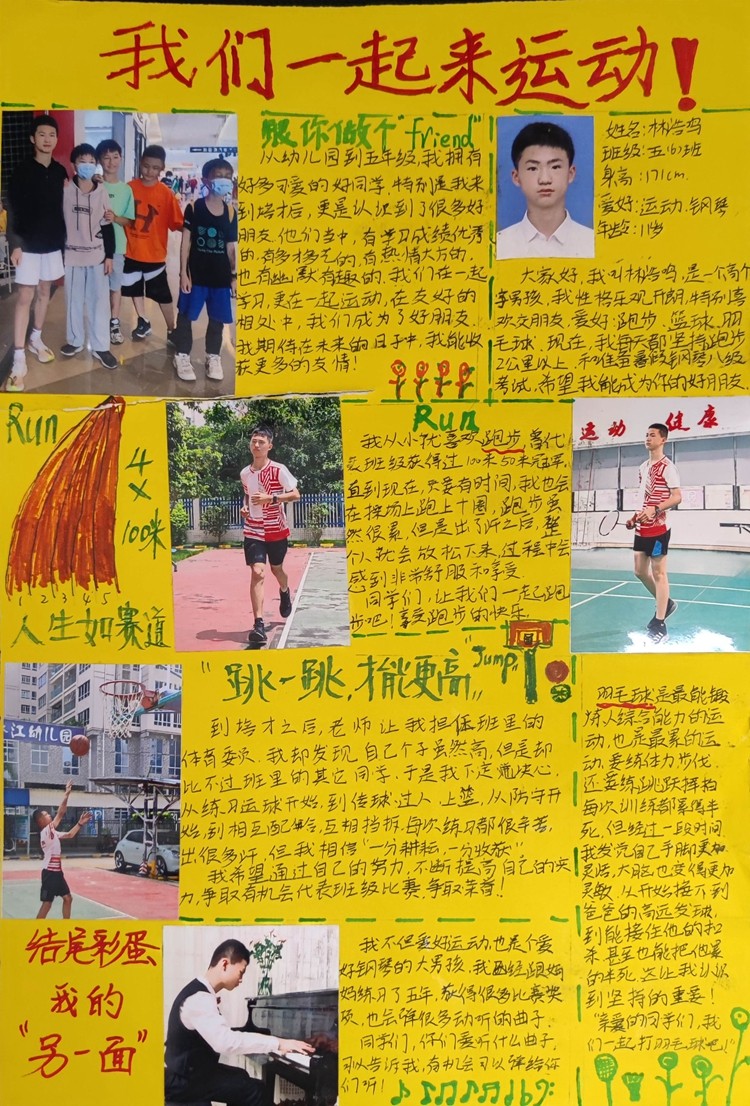 我们一起来运动!
跟你做个"friend"
从幼儿园到五年级,我拥有
好多可爱的好同学,特别是我来
到培才后,更是认识到了很多好
朋友.他们当中,有学习成绩优秀
的,有多才多艺的,有热情大方的,
也有幽默有趣的.我们在一起
学习,更在一起运动,在友好的
相处中,我们成为了好朋友.
我期待在未来的日子中,我能收
获更多的友情!
姓名:林浩鸣
班级:五(6)班
身高:171cm
爱好:运动,钢琴
年龄:11岁
大家好,我叫林浩鸣,是一个高个
子男孩,我性格乐观开朗,特别喜
欢交朋友,爱好:跑步、篮球、羽
毛球.现在,我每天都坚持跑步
2公里以上,
钢琴八级
考试.希望我能成为你的好朋友.
Run
4×100米
1 2 3 4 5
人生如赛道
Run
我从小就喜欢跑步,曾代
表班级获得过100米50米冠军,
直到现在,只要有时间,我也会
在操场上跑上十圈,跑步虽
然很累,但是出了汗之后,整
个人就会放松下来,过程中会
感到非常舒服和享受.
同学们,让我们一起跑
步吧!享受跑步的快乐.
运动 健康
"跳一跳,才能更高"
Jump
江幼儿园
到培才之后,老师让我担任班里的
体育委员.我却发现自己个子虽然高,但是却
比不过班里的其它同学.于是我下定决心,
从练习运球开始,到传球,过人,上篮,从防守开
始,到相互配合,互相挡拆.每次练习都很辛苦,
出很多汗,但我相信"一分耕耘,一分收获"
我希望通过自己的努力,不断提高自己的实
力,争取有机会代表班级比赛,争取荣誉!
羽毛球是最能锻
炼人综合能力的运
动,也是最累的运
动.要练体力步伐
还要练跳跃挥拍
每次训练都累得半
死,但经过一段时间,
我发觉自己手脚更加
灵活,大脑也变得更加
灵敏,从开始接不到
爸爸的高远发球,
到能接住他的扣
杀,甚至也能把他累
的半死.这让我认识
到坚持的重要!
"亲爱的同学们,我
们一起打羽毛球吧!"
结尾彩蛋
我的
"另一面"
我不但爱好运动,也是个爱
好钢琴的大男孩,我已经跟妈
妈练习了五年,获得很多比赛奖
项,也会弹很多动听的曲子.
同学们,你们要听什么曲子,
可以告诉我,有机会可以弹给你
们听!